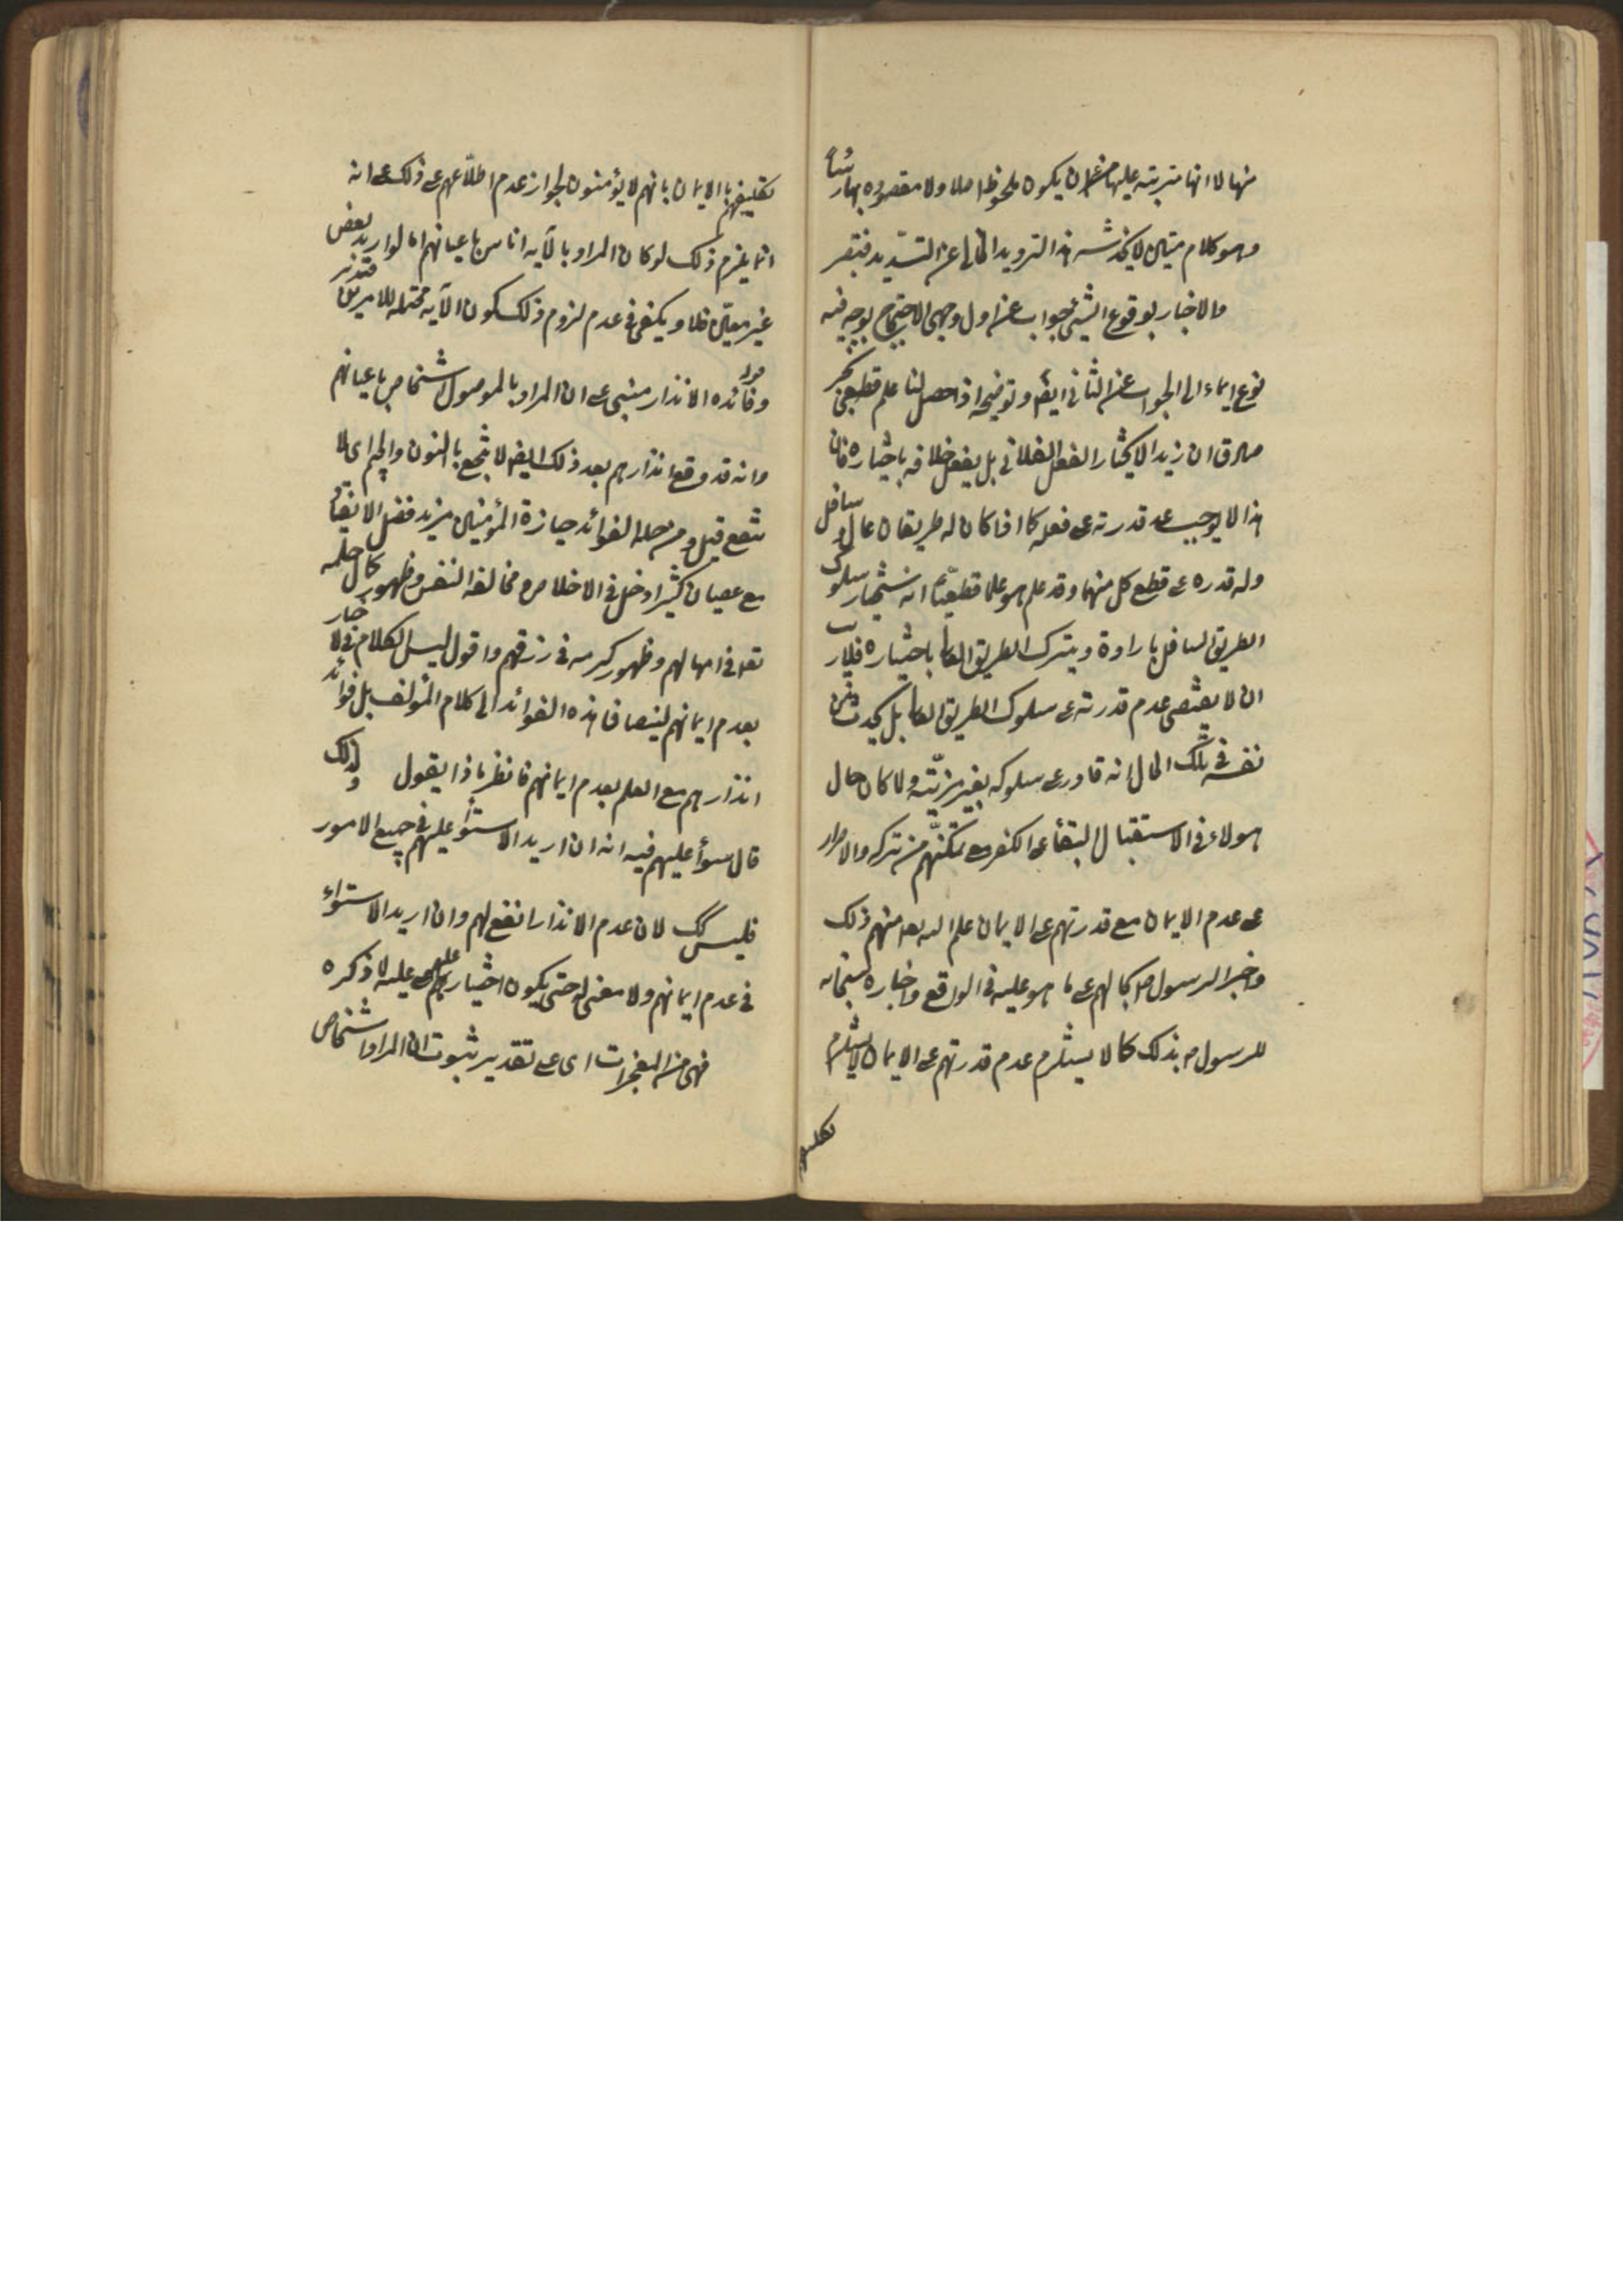 منها لا انها مترتبة عليها من غير ان يكون ملحوظا اصلا ولا مقصوده بها رأسا
وهو كلام متين لا يخدشه هذا الترويد الخالى عن التسديد فتبصر
والاخبار بوقوع الشيئ جواب عن اول وجهى الاحتجاج بوجه فيه
نوع ايماء الى الجواب عن الثانى ايضا وتوضيحه اذا حصل لنا علم قطعى بخبر
صادق ان زيدا لا يختار الفعل الفلانى بل يفعل خلافه باختياره فان
هذا لا يوجب عدم قدرته على فعله كما اذا كان له طريقان عال وسافل
وله قدره على قطع كل منهما وقد علم هو علما قطعيا انه سيختار سلوك
الطريق السافل بارادة ويترك الطريق العالى باختياره فلا ريب
ان لا يقتضى عدم قدرته على سلوك الطريق العالى بل يجد من
نفسه فى تلك الحال انه قادر على سلوكه بغير مزية ولما كان حال
هولاء فى الاستقبال البقاء على الكفر مع تمكنهم من تركه والاصرار
على عدم الايمان مع قدرتهم على الايمان علم الله تعه منهم ذلك
واخبر الرسول ص بحالهم على ما هو عليه فى الواقع واخباره سبحانه
للرسول ص بذلك كما لا يستلزم عدم قدرتهم على الايمان لا يستلزم
تكليفهم
تكليفهم بالايمان بانهم لا يؤمنون لجواز عدم اطلاعهم على ذلك على انه
انما يلزم ذلك لو كان المراد بالآيه اناس باعيانهم اما لو اريد بعض
غير معين فلا ويكفى فى عدم لزوم ذلك كون الآيه محتمله للامرين فتدبر
قوله وفائده الانذار مبنى على ان المراد بالموصول اشخاص باعيانهم
وانه قد وقع انذارهم بعد ذلك ايضا لا تنجع بالنون والجيم اى لا
تنفع قيل ومن جمله الفوائد حيازة المؤمنين مزيد فضل الاتقاء
مع عصيان كثير ادخل فى الاخلاص ومخالفه النفس وظهور كمال حلمه
تعه فى امهالهم وظهور كرمه فى رزقهم واقول ليس الكلام فى الاخبار
بعدم ايمانهم لينضاف هذه الفوائد الى كلام المؤلف بل فوائد
انذارهم مع العلم بعدم ايمانهم فانظر ماذا يقول ولذلك
قال سوأ عليهم فيه انه ان اريد الاستوأ عليهم فى جميع الامور
فليس كك لان عدم الانذار انفع لهم وان اريد الاستواء
فى عدم ايمانهم ولا معنى له حتى يكون اختيار عليهم على عليه لما ذكره
فهى من المعجزات اى على تقدير ثبوت ان المراد اشخاص